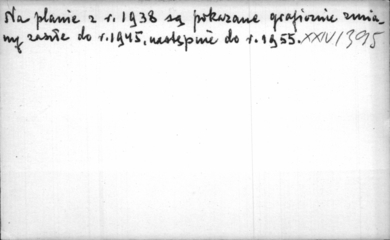 Na planie z r. 1938 są pokazane graficznie zmia-
ny zaszłe do r. 1945, następnie do r. 1955. XXIV/395